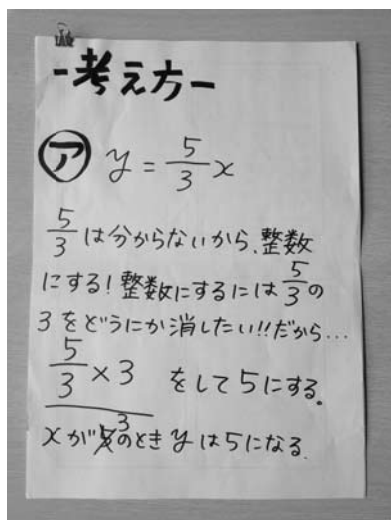 -考え方-
㋐ y = 5/3 x
5/3 は分からないから、整数
にする！整数にするには 5/3 の
3をどうにか消したい!!だから…
5/3 × 3 をして5にする。
xが3のときyは5になる.